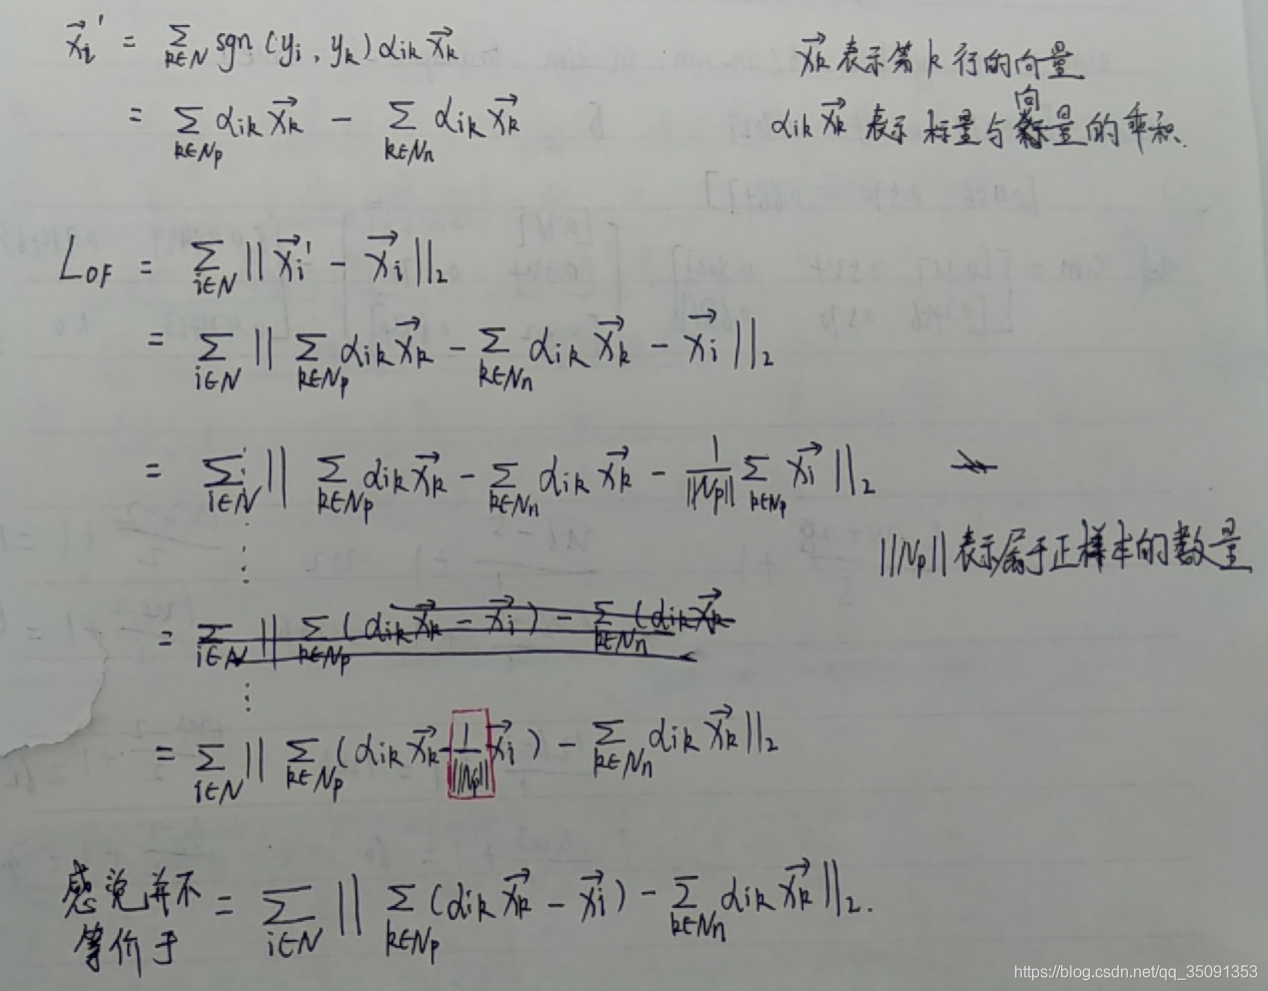 x⃗ᵢ' = Σ_{k∈N} sgn(yᵢ, yₖ) αᵢₖ x⃗ₖ
x⃗ₖ 表示第 k 行的向量
= Σ_{k∈Nₚ} αᵢₖ x⃗ₖ − Σ_{k∈Nₙ} αᵢₖ x⃗ₖ
αᵢₖ x⃗ₖ 表示标量与向量的乘积.
L_OF = Σ_{i∈N} || x⃗ᵢ' − x⃗ᵢ ||₂
= Σ_{i∈N} || Σ_{k∈Nₚ} αᵢₖ x⃗ₖ − Σ_{k∈Nₙ} αᵢₖ x⃗ₖ − x⃗ᵢ ||₂
= Σ_{i∈N} || Σ_{k∈Nₚ} αᵢₖ x⃗ₖ − Σ_{k∈Nₙ} αᵢₖ x⃗ₖ − 1/||Nₚ|| Σ_{k∈Nₚ} x⃗ᵢ ||₂
||Nₚ|| 表示属于正样本的数量
⋮
= Σ_{i∈N} || Σ_{k∈Nₚ} (αᵢₖ x⃗ₖ − x⃗ᵢ) − Σ_{k∈Nₙ} (αᵢₖ x⃗ₖ
⋮
= Σ_{i∈N} || Σ_{k∈Nₚ} (αᵢₖ x⃗ₖ − 1/||Nₚ|| x⃗ᵢ) − Σ_{k∈Nₙ} αᵢₖ x⃗ₖ ||₂
感觉并不
等价于 = Σ_{i∈N} || Σ_{k∈Nₚ} (αᵢₖ x⃗ₖ − x⃗ᵢ) − Σ_{k∈Nₙ} αᵢₖ x⃗ₖ ||₂.
https://blog.csdn.net/qq_35091353